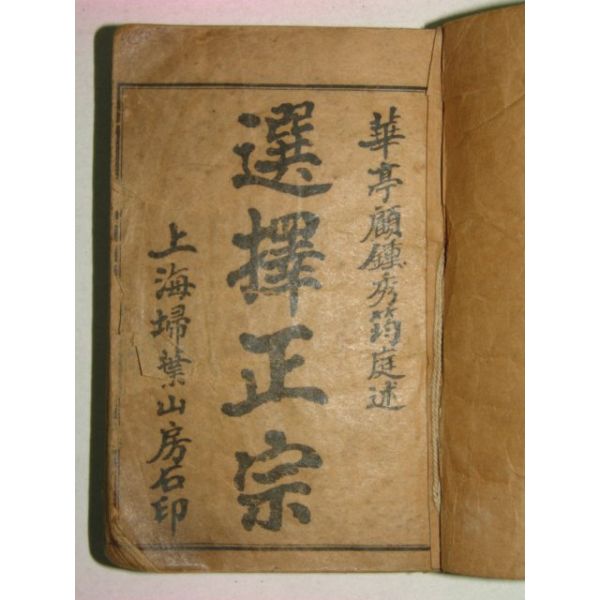 華亭顧鍾秀筠庭述
選擇正宗
上海埽葉山房石印